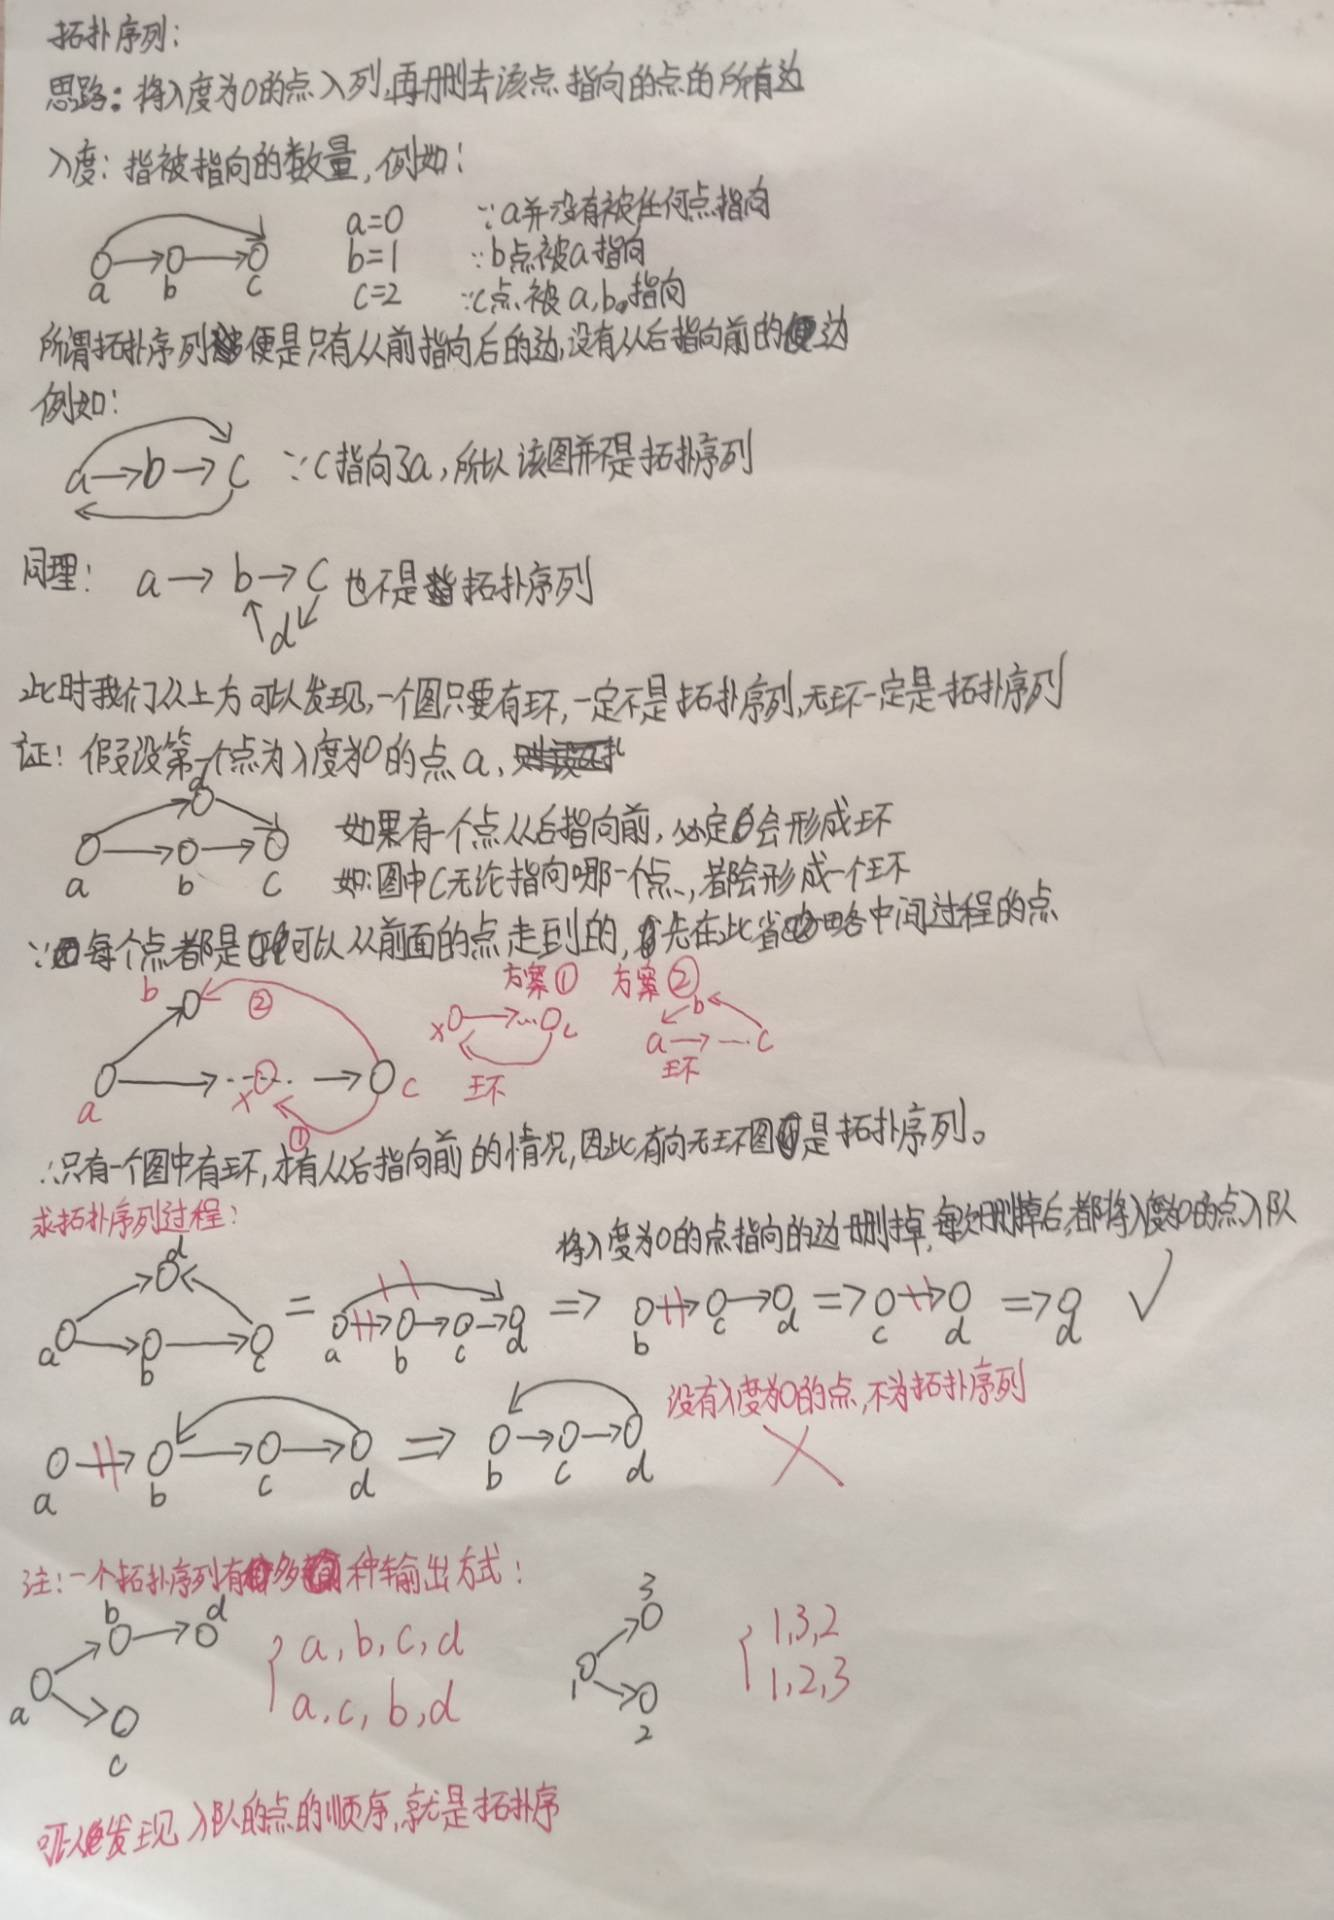 拓扑序列:
思路:将入度为0的点入列,再删去该点指向的点的所有边
入度:指被指向的数量,例如:
a=0 ∵a并没有被任何点指向
b=1 ∵b点被a指向
a b c
c=2 ∵c点被a,b指向
所谓拓扑序列便是只有从前指向后的边,没有从后指向前的边
例如:
a→b→c ∵c指向了a,所以该图并不是拓扑序列
同理: a→b→c 也不是拓扑序列
d
此时我们从上方可以发现,一个图只要有环,一定不是拓扑序列,无环一定是拓扑序列
证:假设第一个点为入度为0的点a,
d
如果有一个点从后指向前,必定会形成环
a b c
如:图中c无论指向哪一个点,都会形成一个环
∵每个点都是可以从前面的点走到的,先在此省略中间过程的点
b ② 方案① 方案②
x→...c b
a→...c
环 环
a x c
①
∴只有一个图中有环,才有从后指向前的情况,因此有向无环图是拓扑序列。
求拓扑序列过程:
将入度为0的点指向的边删掉,每次删掉后,都将入度为0的点入队
d
= ⇒ ⇒ ⇒ √
a b c a b c d b c d c d d
没有入度为0的点,不为拓扑序列
⇒ ×
a b c d b c d
注:一个拓扑序列有多种输出方式:
b d 3
a,b,c,d 1,3,2
a 1
a,c,b,d 1,2,3
c 2
可以发现入队的点的顺序,就是拓扑序